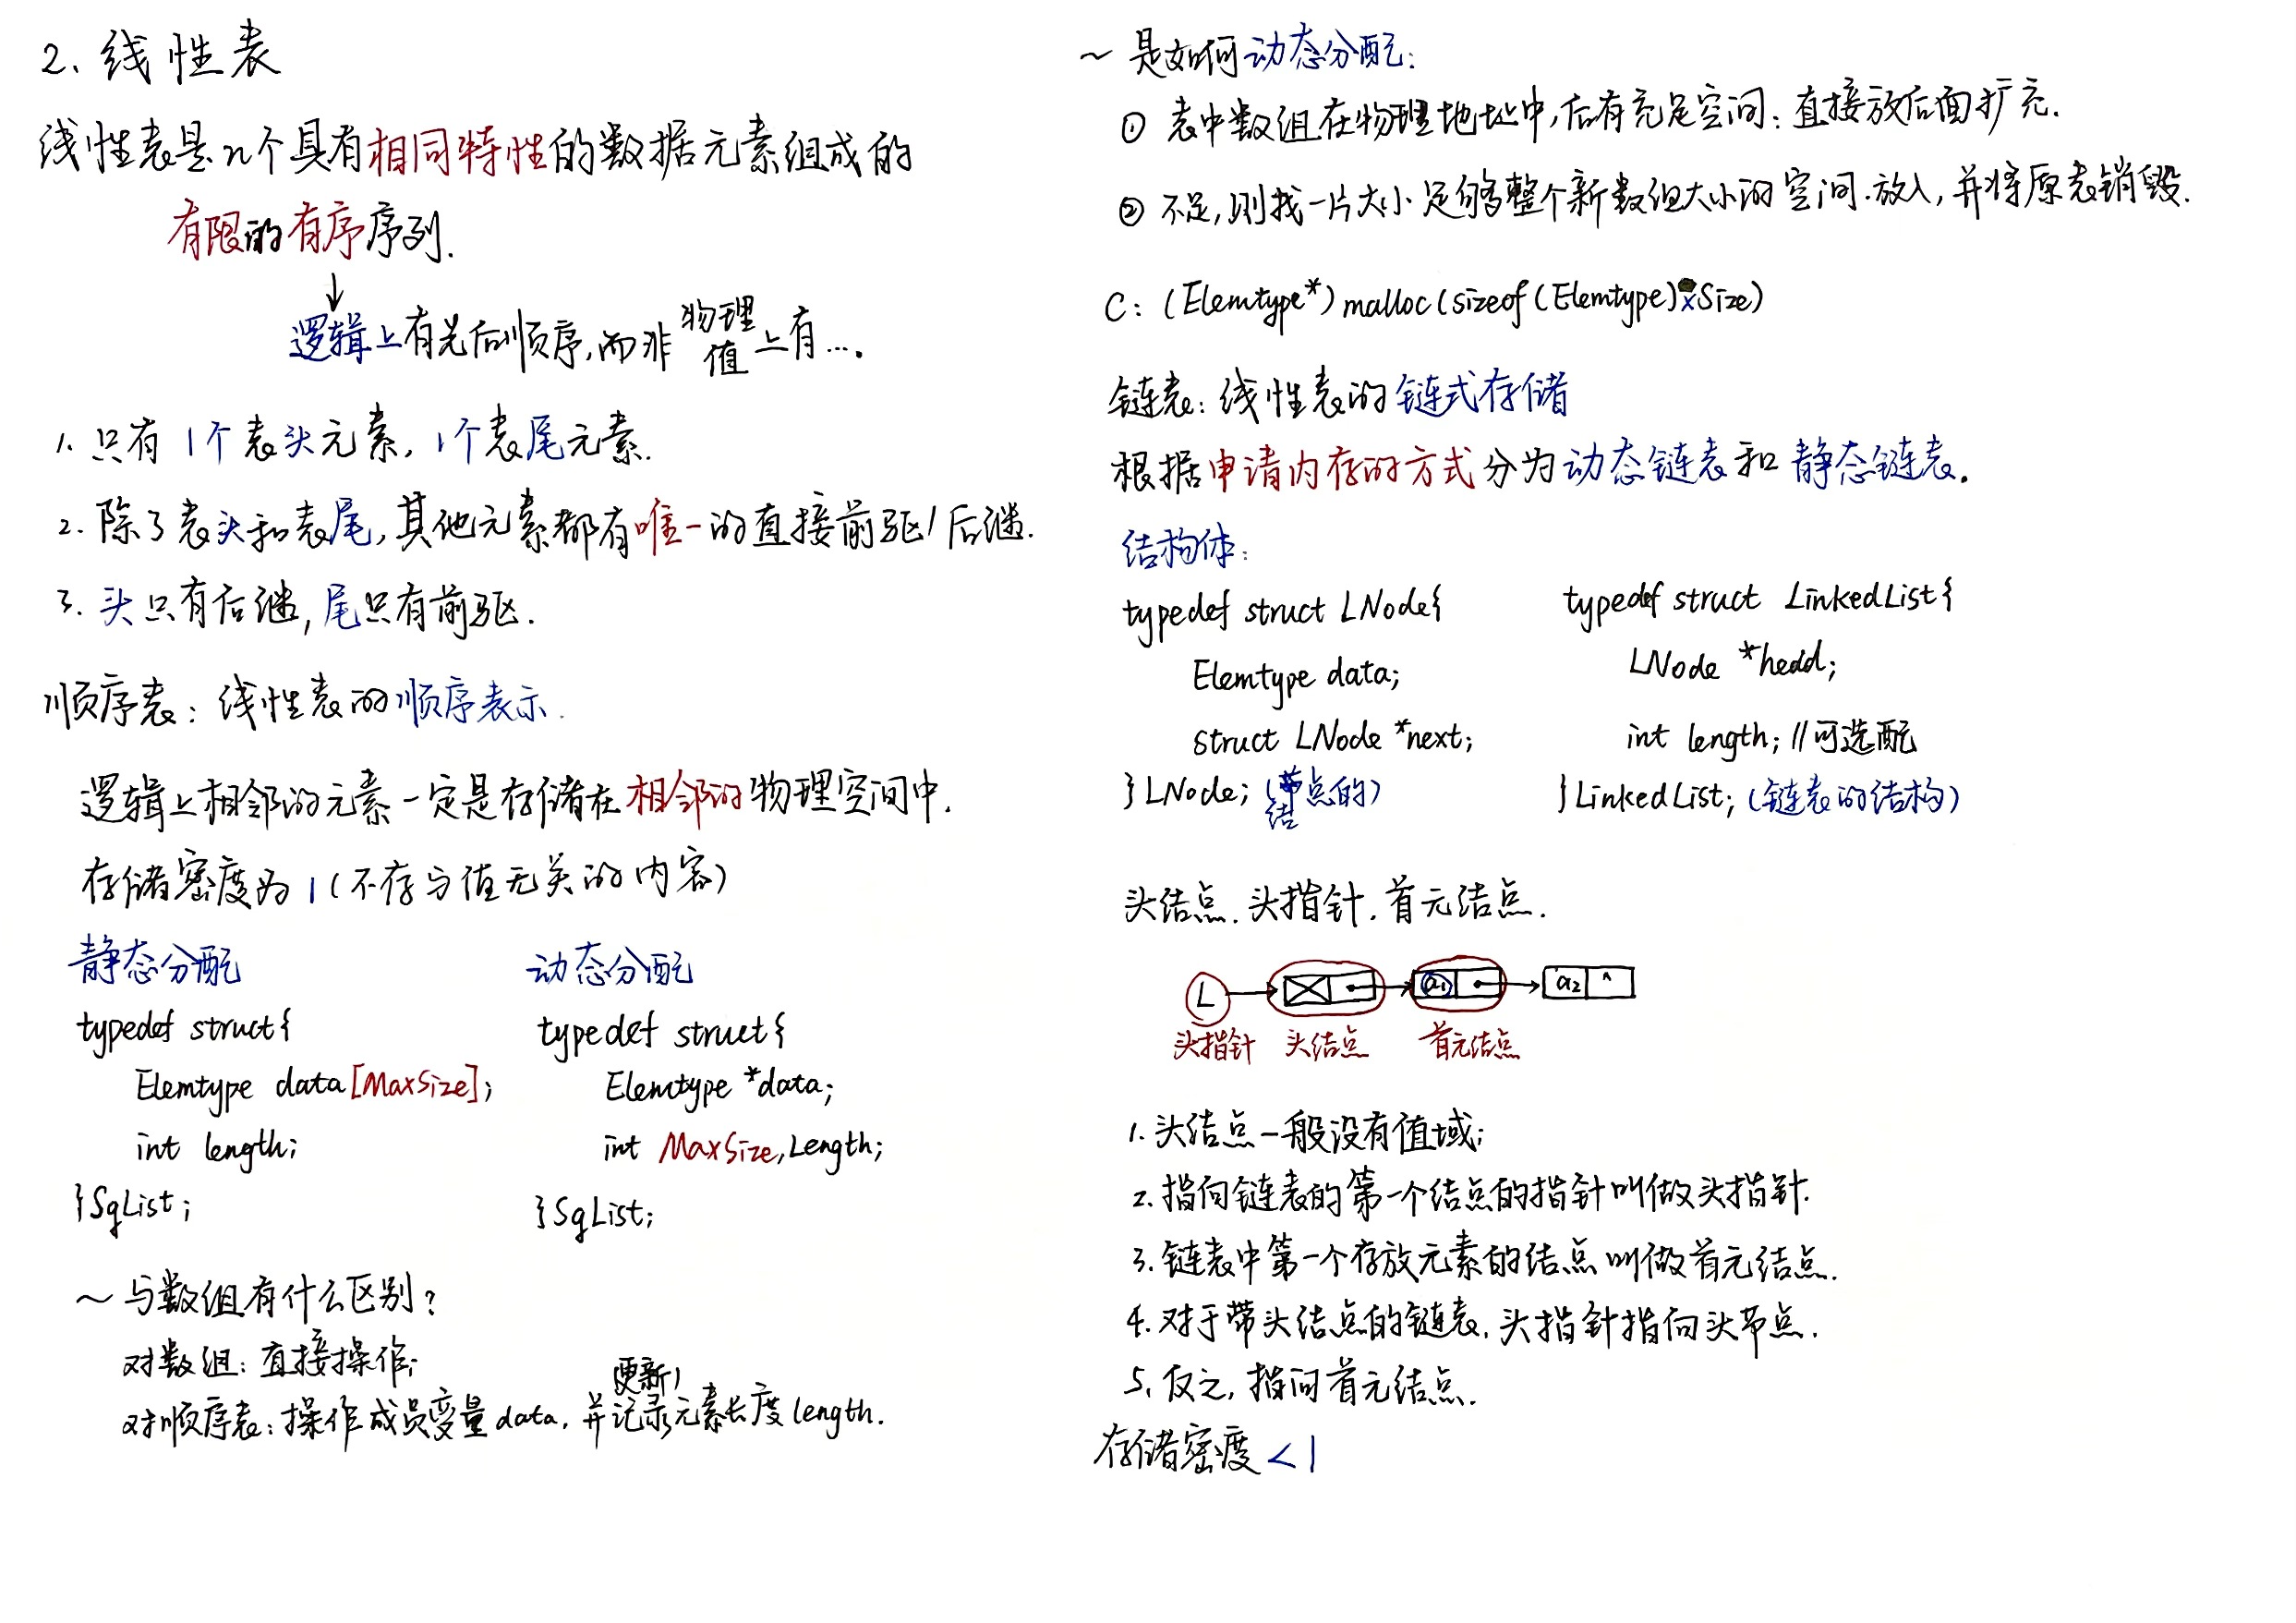 2、线性表
线性表是n个具有相同特性的数据元素组成的
有限的有序序列.
↓
逻辑上有先后顺序,而非物理值上有….
1. 只有1个表头元素, 1个表尾元素.
2. 除了表头和表尾,其他元素都有唯一的直接前驱/后继.
3. 头只有后继,尾只有前驱.
顺序表: 线性表的顺序表示.
逻辑上相邻的元素一定是存储在相邻的物理空间中.
存储密度为1(不存与值无关的内容)
静态分配
typedef struct{
Elemtype data[MaxSize];
int length;
}SqList;
动态分配
typedef struct{
Elemtype *data;
int MaxSize,Length;
}SqList;
~ 与数组有什么区别?
对数组: 直接操作;
对顺序表: 操作成员变量data, 并记录(更新)元素长度length.
~ 是如何动态分配:
① 表中数组在物理地址中,后有充足空间: 直接放后面扩充.
② 不足,则找一片大小足够整个新数组大小的空间.放入,并将原表销毁.
C: (Elemtype*)malloc(sizeof(Elemtype)×Size)
链表: 线性表的链式存储
根据申请内存的方式分为动态链表和静态链表.
结构体:
typedef struct LNode{
Elemtype data;
struct LNode *next;
}LNode; (结点的)
typedef struct LinkedList{
LNode *hedd;
int length; //可选配
}LinkedList; (链表的结构)
头结点. 头指针. 首元结点.
L a₁ a₂ ^
头指针 头结点 首元结点
1. 头结点一般没有值域;
2. 指向链表的第一个结点的指针叫做头指针.
3. 链表中第一个存放元素的结点叫做首元结点.
4. 对于带头结点的链表, 头指针指向头节点.
5. 反之, 指向首元结点.
存储密度<1